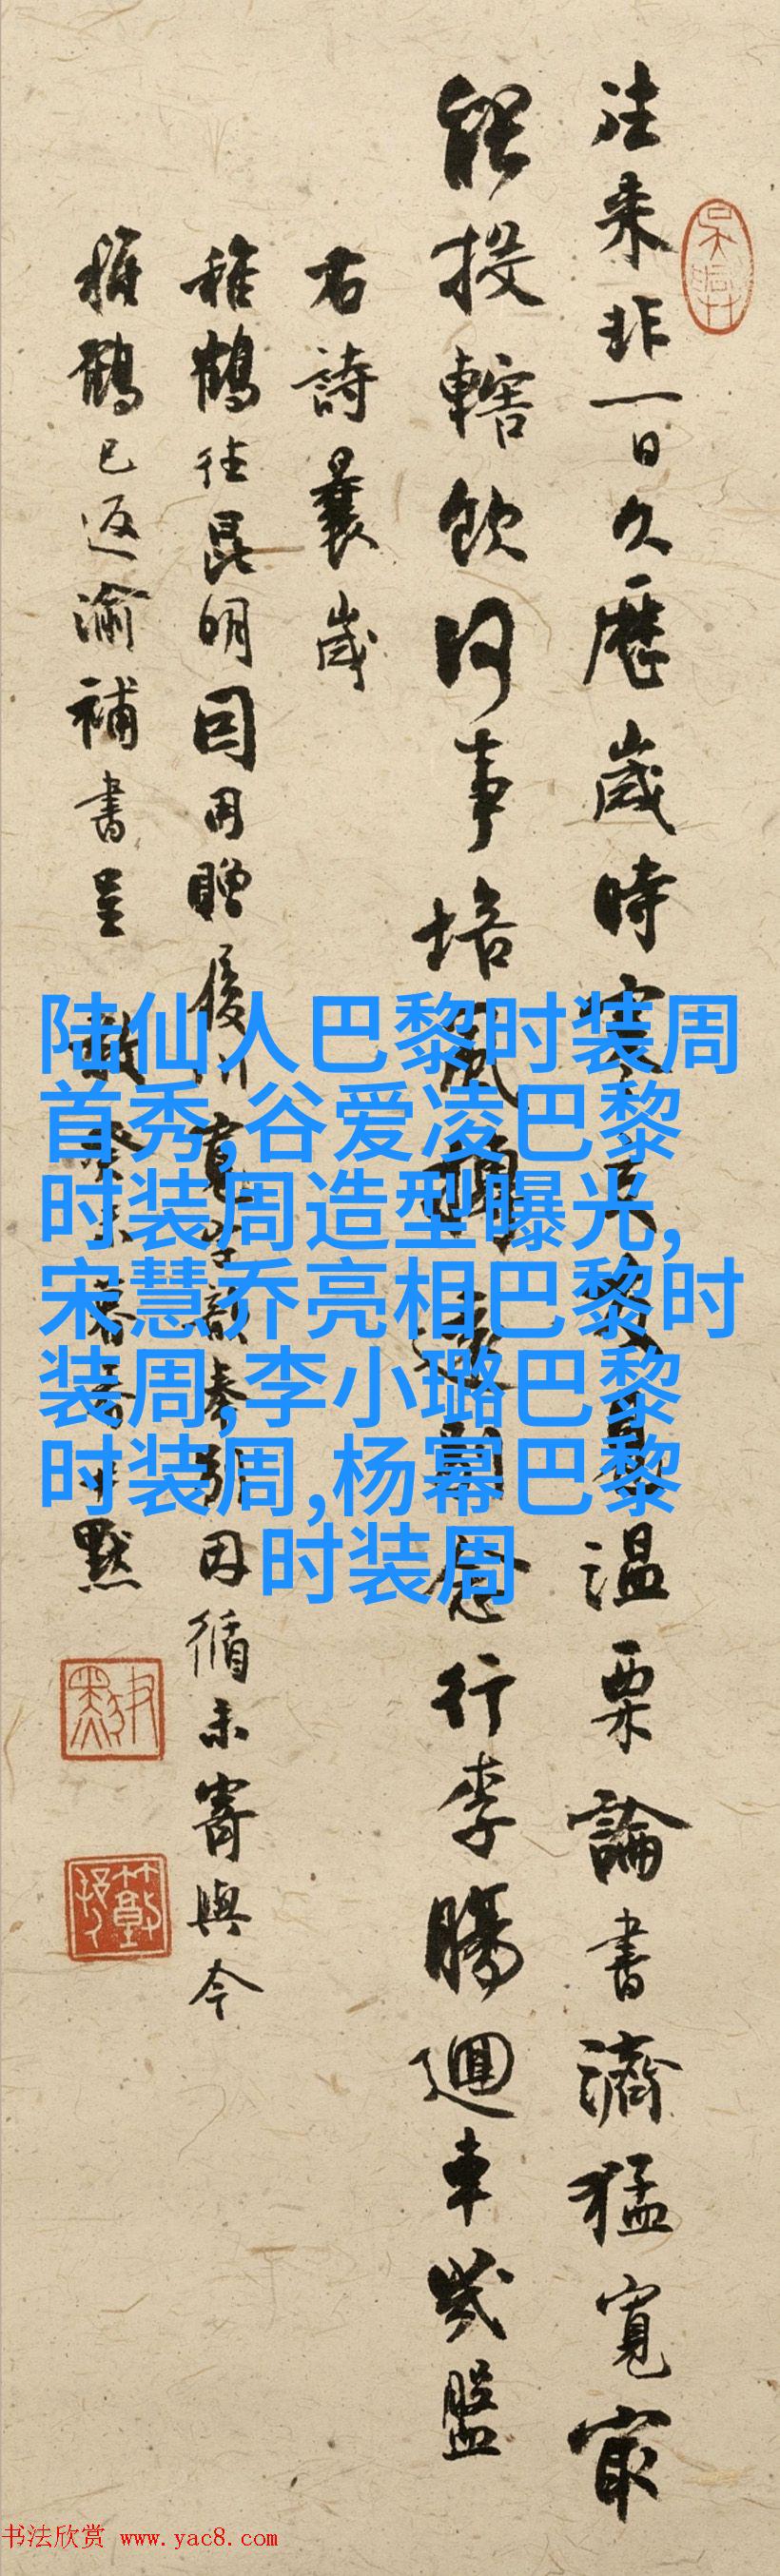 往来非一日久歷歲時寒交 最温栗論書濟猛寬最
能投轄飲何事培風 遠 念行李腸迴車幾盤
右詩曩歲
稚鶴往昆明因用贈 後 因循未寄與今
稚鶴已返渝補書呈
默
陆仙人巴黎时装周
首秀,谷爱凌巴黎
时装周造型曝光,
宋慧乔亮相巴黎时
装周,李小璐巴黎
时装周,杨幂巴黎
时装周
书法欣赏 www.yac8.com